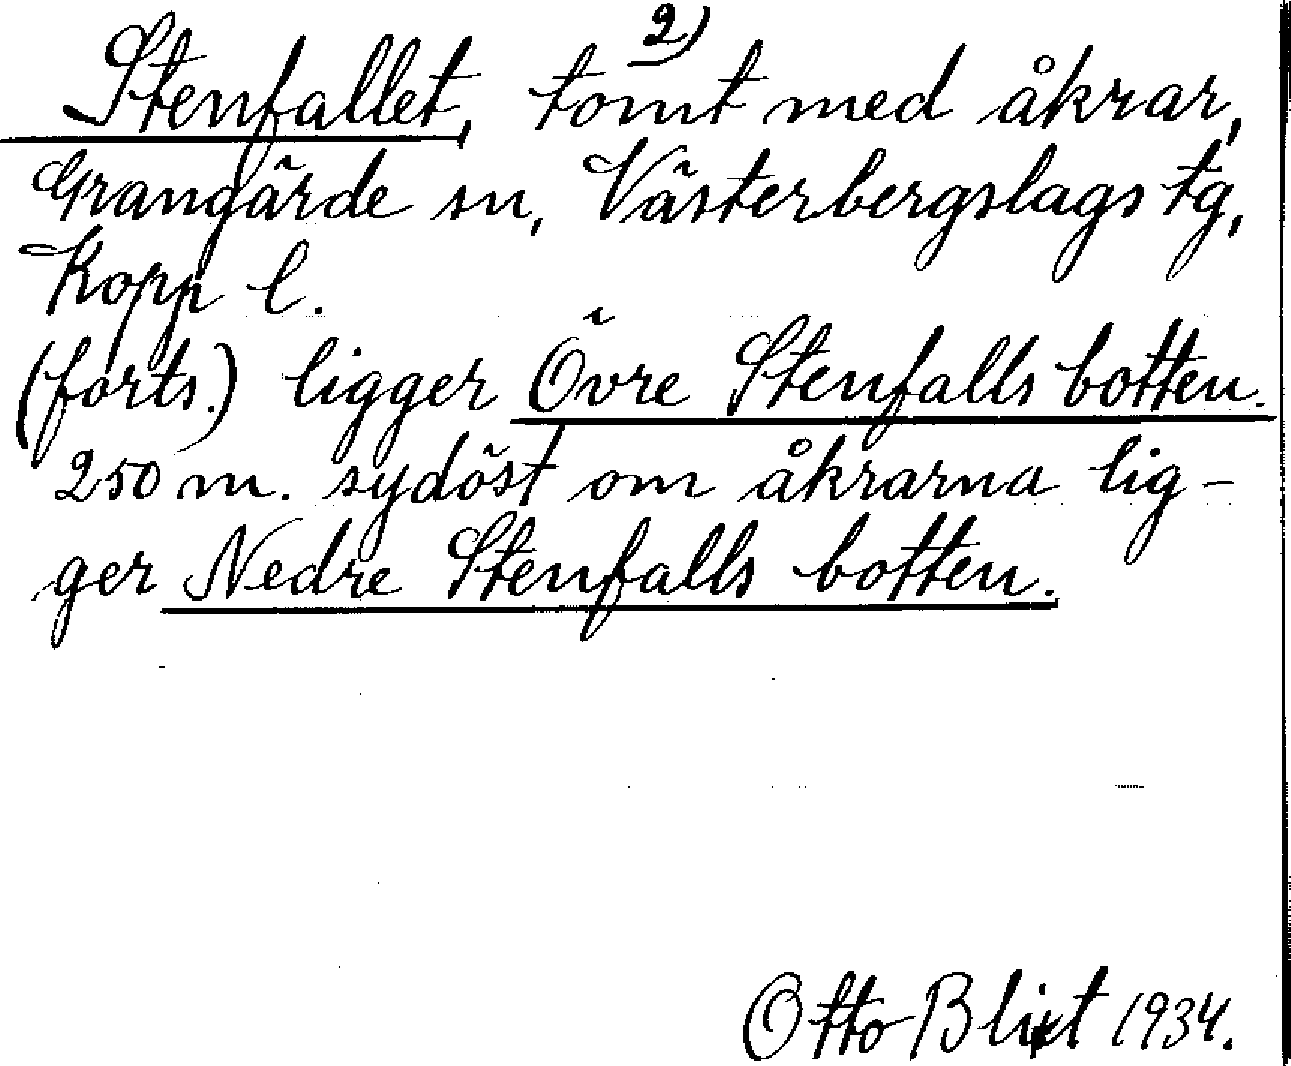 2)
Stenfallet, tomt med åkrar,
Grangärde sn, Västerbergslags tg,
Kopp l.
(forts.) ligger Övre Stenfalls botten.
250 m. sydöst om åkrarna lig-
ger Nedre Stenfalls botten.
Otto Blixt 1934.